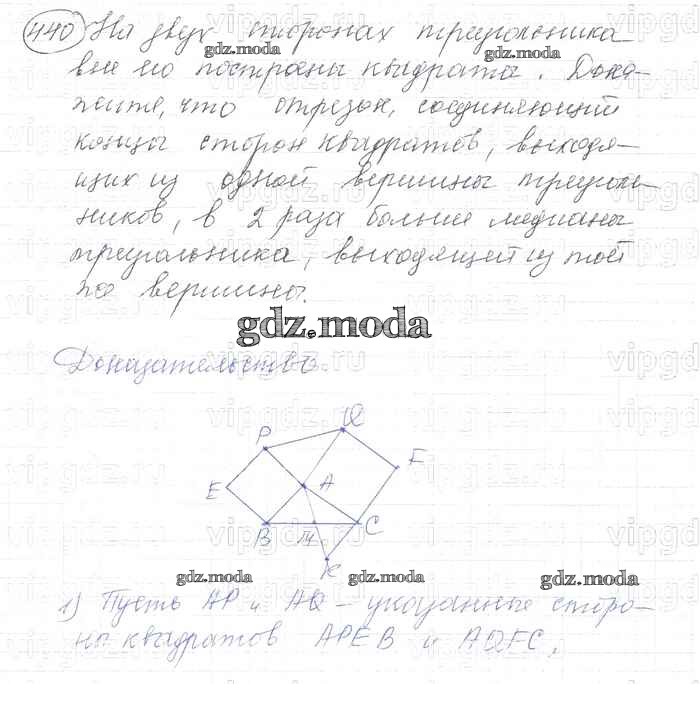 440 На двух сторонах треугольника
вне его построены квадраты. Дока-
жите, что отрезок, соединяющий
концы сторон квадратов, выходя-
щих из одной вершины треуголь-
ников, в 2 раза больше медианы
треугольника, выходящей из той
же вершины.
gdz.moda
Доказательство.
P Q F
E A
B M C
K
gdz.moda
1) Пусть AP и AQ - указанные сторо-
ны квадратов APEB и AQFC,